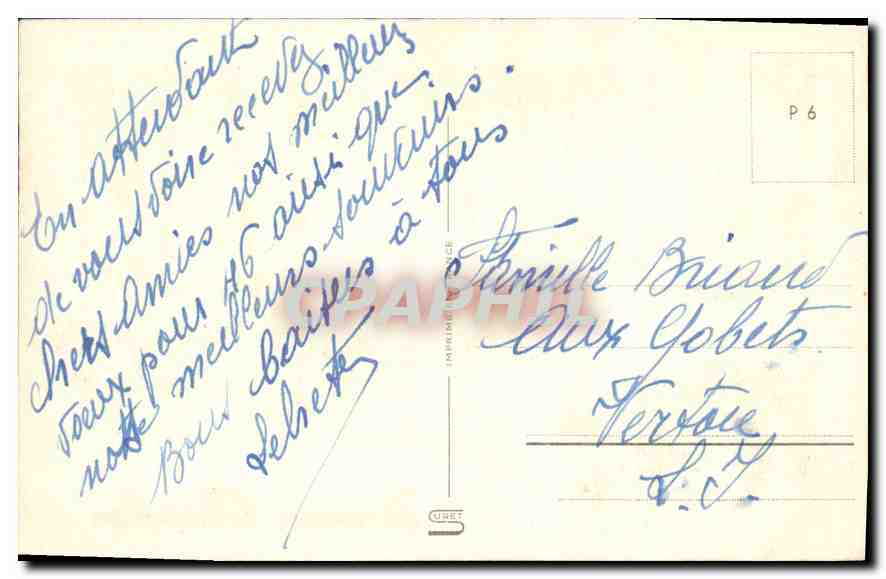 En attendant
de vous voire recevez
chers amies nos meilleurs
vœux pour 46 ainsi que
notre meilleurs souvenirs.
Bons baisers à tous
P 6
Famille Briand
Aux Gobets
Vertou
L. I.
IMPRIMÉ EN FRANCE
CPAPHIL
SURET